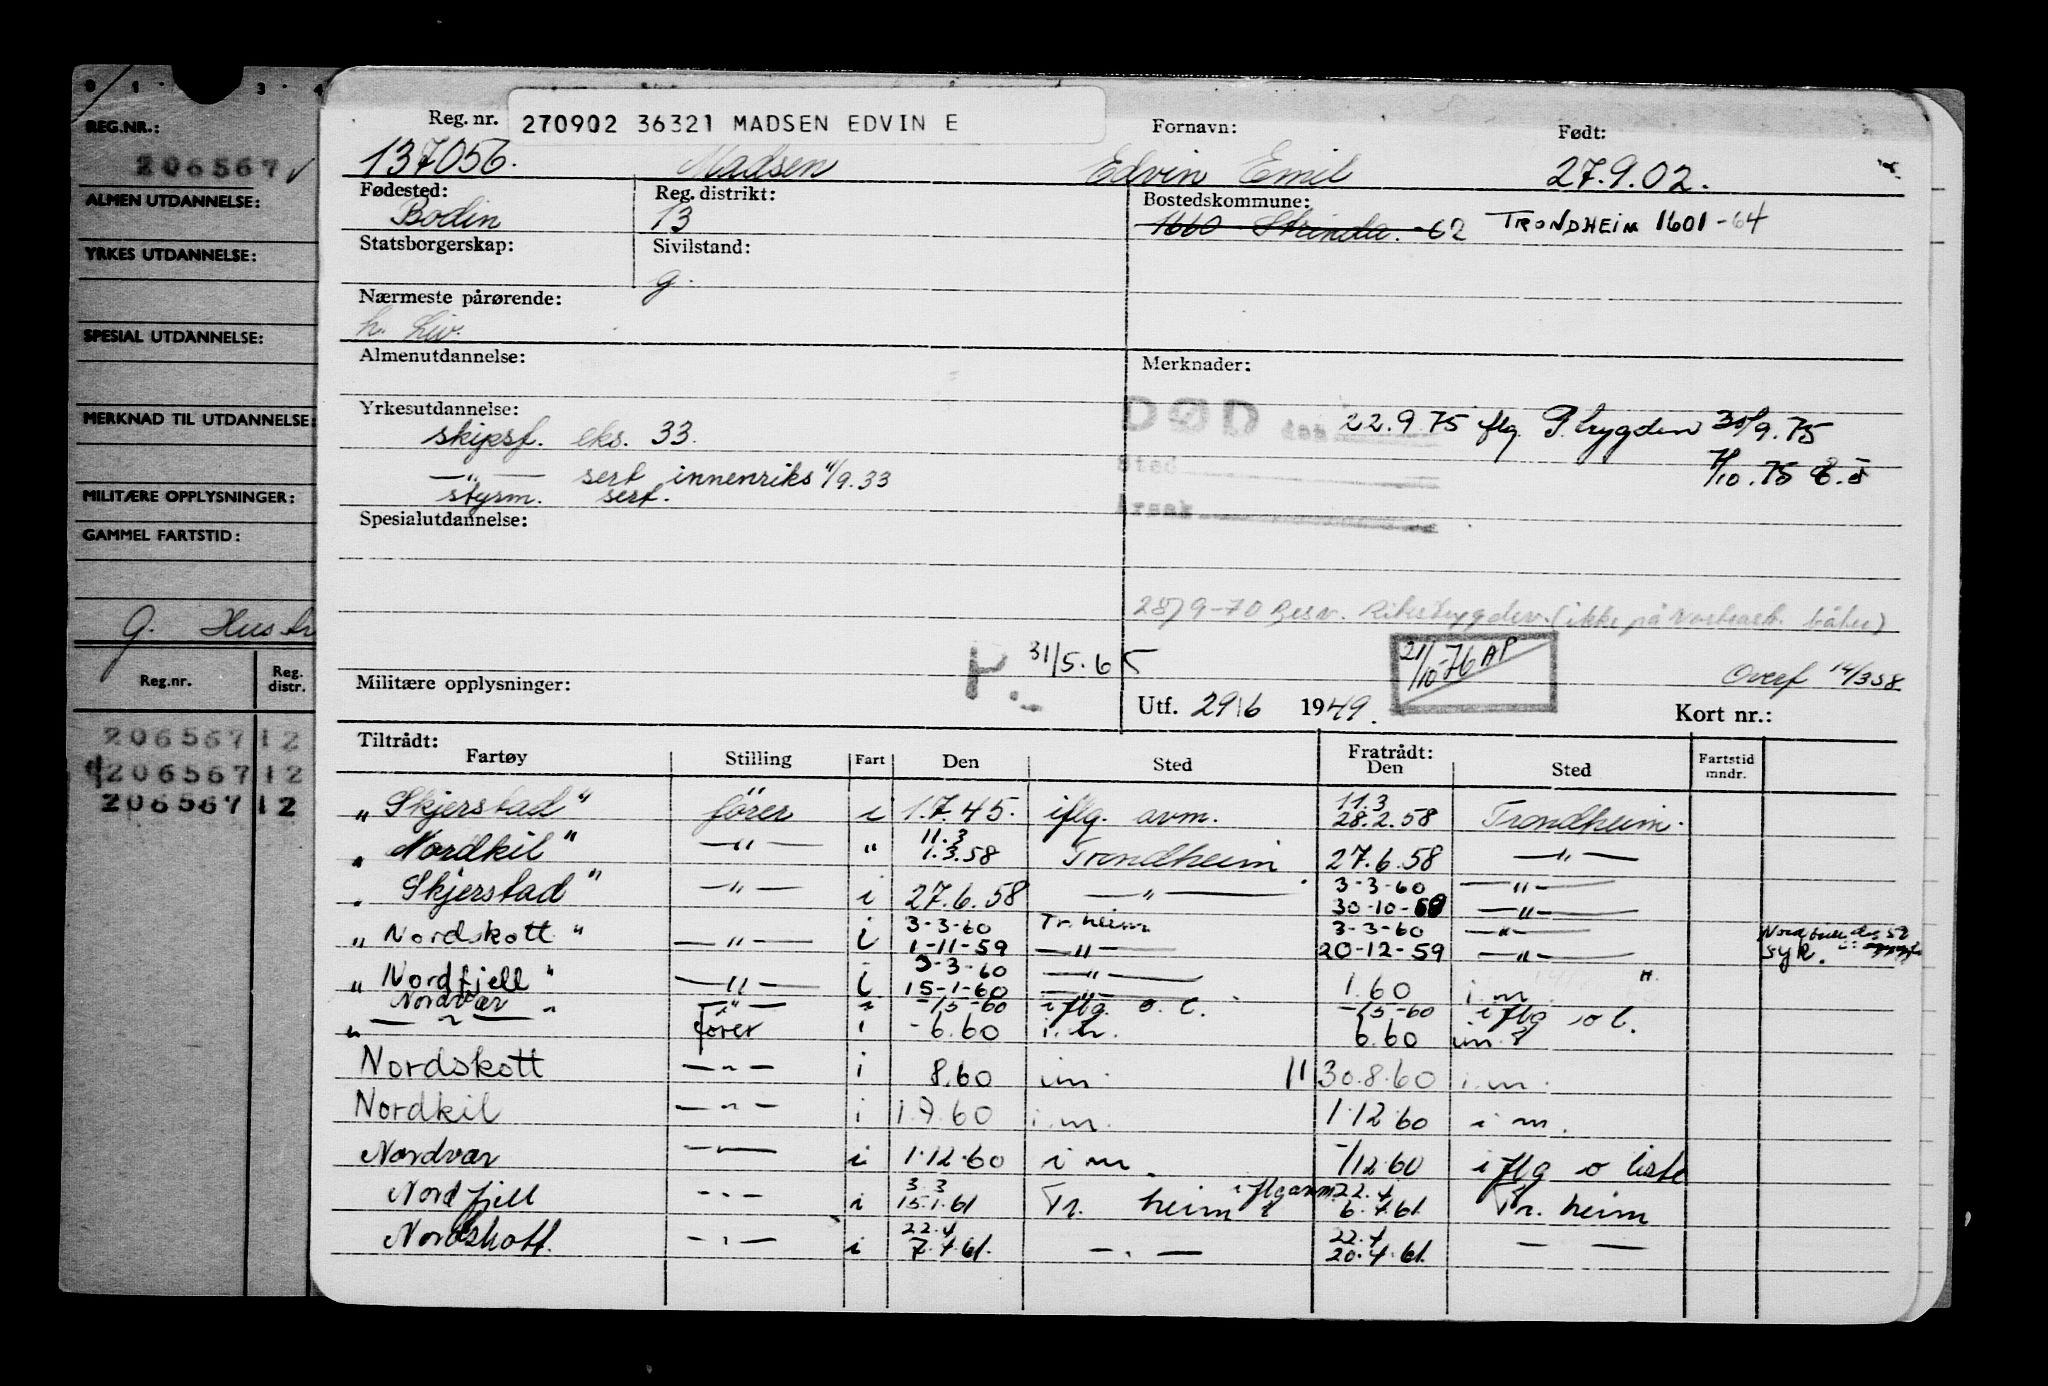 REG.NR.:
206567
ALMEN UTDANNELSE:
YRKES UTDANNELSE:
SPESIAL UTDANNELSE:
MERKNAD TIL UTDANNELSE:
MILITÆRE OPPLYSNINGER:
GAMMEL FARTSTID:
g. Hustr
Reg.nr. Reg. distr.
206567 12
206567 12
206567 12
Reg. nr. 270902 36321 MADSEN EDVIN E Fornavn: Født:
137056. Madsen Edvin Emil 27.9.02.
Fødested: Reg. distrikt: Bostedskommune:
Bodin 13 1660 Strinda. -62 TRONDHEIM 1601-64
Statsborgerskap: Sivilstand:
g.
Nærmeste pårørende:
h. Liv.
Almenutdannelse: Merknader:
Yrkesutdannelse: DØD den 22.9.75 flg. P. trygden 30/9.75
skipsf. eks. 33.
—"— sert innenriks 11/9.33 Sted
styrm. sert. Årsak
Spesialutdannelse:
28/9-70 Besv. Rikstrygdev. (ikke på
P. 31/5.65 21/10-76 AP Overf 14/3 58
Militære opplysninger: Utf. 29/6 1949. Kort nr.:
Tiltrådt: Fratrådt:
Fartøy Stilling Fart Den Sted Den Sted Fartstid mndr.
11.3
„Skjerstad" fører i 1.7.45. iflg. avm. 28.2.58 Trondheim.
11.3
„Nordkil" —"— " 1.3.58 Trondheim 27.6.58 —"—
3-3-60 —"—
„Skjerstad" —"— i 27.6.58 —"— 30-10-59 —"—
3-3-60 Tr.heim 3-3-60 —"—
„Nordskott" —"— i 1-11-59 —"— 20-12-59 —"— syk.
3-3-60 —"—
„Nordfjell" —"— i 15-1-60 —"— 1.60 i.m.
Nordvær —"— i -/5-60 iflg. o.l. -/5-60 iflg o l.
„—"— fører i -6.60 i.m. 6.60 i.m.
Nordskott —"— i 8.60 i.m. 30.8.60 i.m.
Nordkil —"— i 1.9.60 i.m. 1.12.60 i m.
Nordvær —"— i 1.12.60 i m. -/12.60 iflg o liste
3.3 iflg avm. 22.4
Nordfjell —"— i 15.1.61 Tr. heim 6.4.61 Tr. heim
22.4 22.4
Nordskott. —"— i 7.4.61. —"— 20.4.61. — —